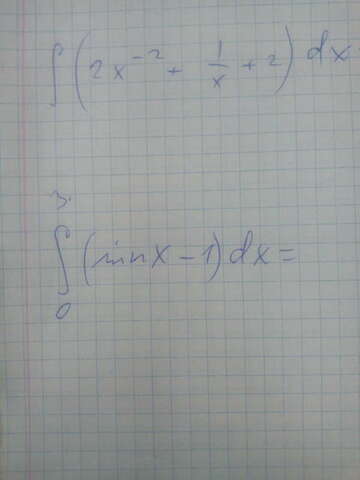 ∫(2x⁻² + 1/x + 2) dx
3
∫(sin x − 1) dx =
0